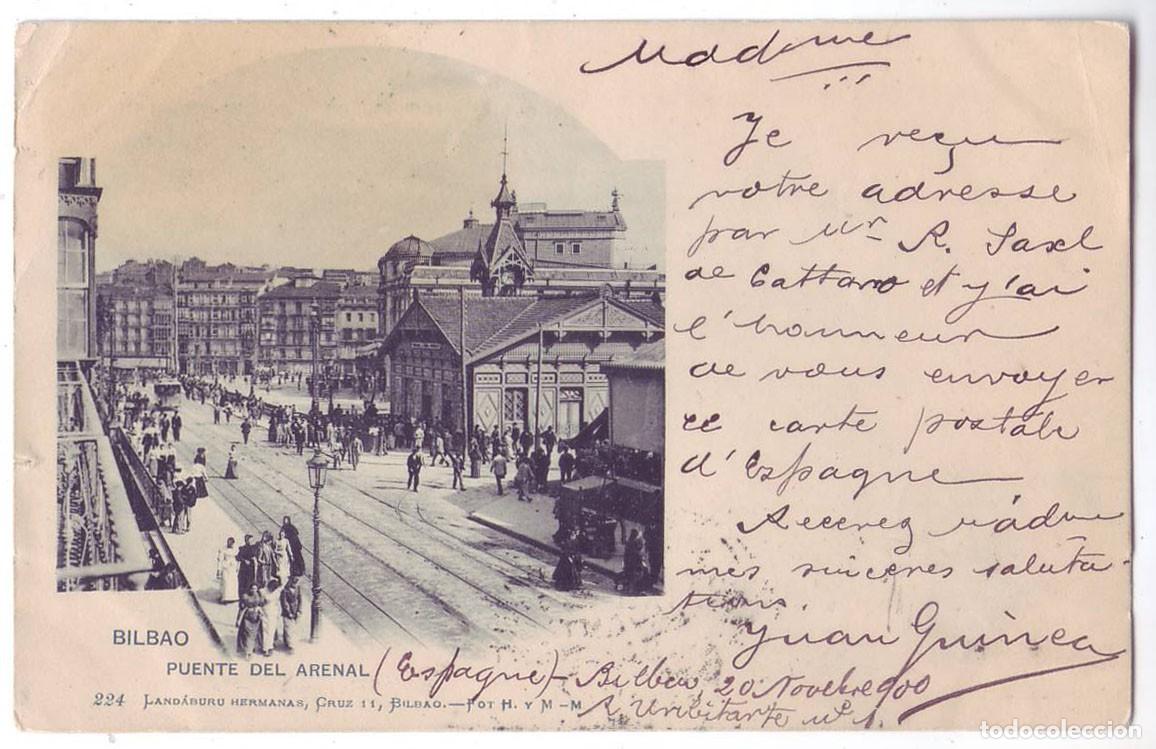 Madame
Je reçu
votre adresse
par Mr R. Saxl
de Cattaro et j'ai
l'honneur
de vous envoyer
ce carte postale
d'Espagne
Madme
mes sinceres saluta-
tions.
Juan Guinea
BILBAO
PUENTE DEL ARENAL (Espagne) - Bilbao, 20 Novebre 900
224 LANDÁBURU HERMANAS, CRUZ 11, BILBAO.—FOT H. Y M -M
Uribitarte nº 1
todocoleccion